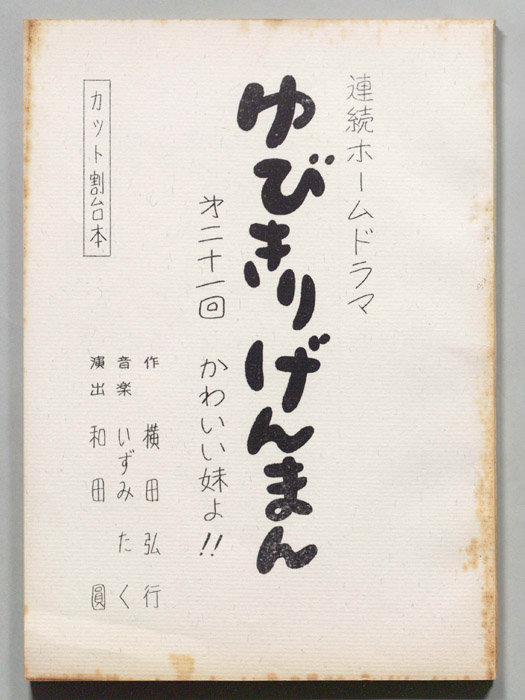 連続ホームドラマ
ゆびきりげんまん
㐧二十一回 かわいい妹よ!!
作 横田弘行
音楽 いずみたく
演出 和田圓
カット割台本